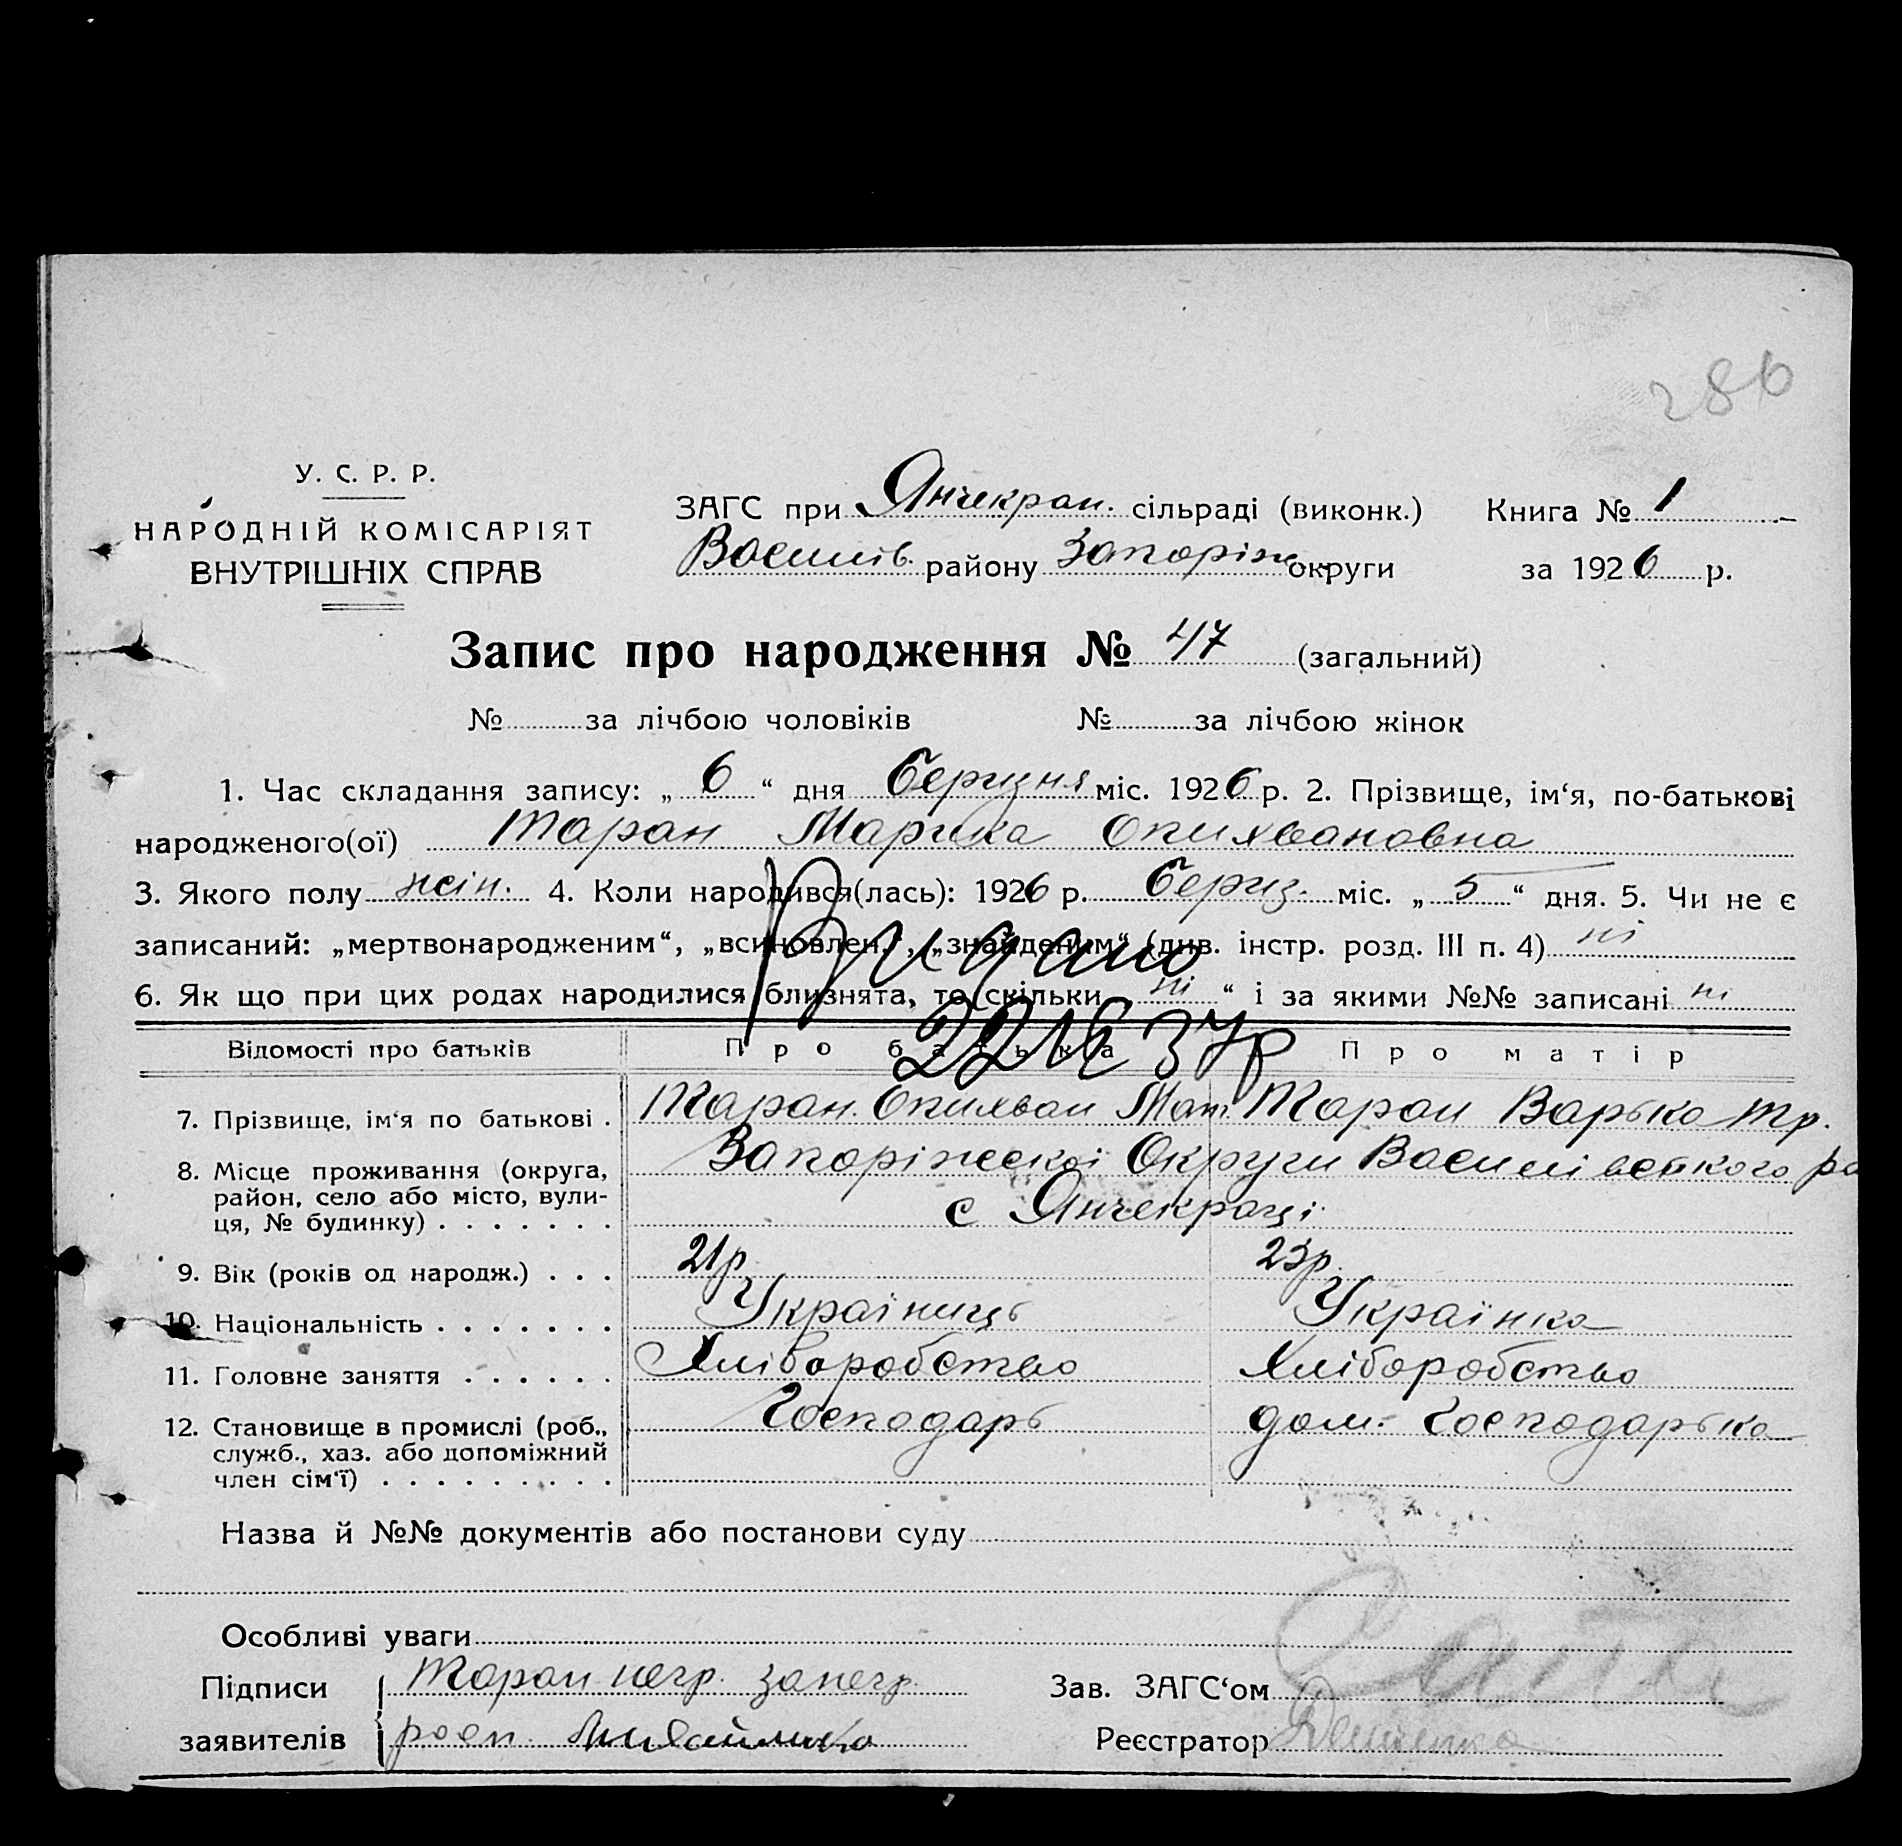 286
У. С. Р. Р.
НАРОДНІЙ КОМІСАРІЯТ
ВНУТРІШНІХ СПРАВ
ЗАГС при Янчекрак. сільраді (виконк.) Книга № 1
Василів. району Запоріж. округи за 1926 р.
Запис про народження № 47 (загальний)
№ за лічбою чоловіків № за лічбою жінок
1. Час складання запису: „ 6 “ дня березня міс. 1926 р. 2. Прізвище, ім‘я, по-батькові
народженого(ої) Таран Марика Опихвановна
3. Якого полу жін. 4. Коли народився(лась): 1926 р. берез. міс. „ 5 “ дня. 5. Чи не є
записаний: „мертвонародженим“, „всиновлен.“, „знайденим“ (див. інстр. розд. III п. 4) ні
6. Як що при цих родах народилися близнята, то скільки „ ні “ і за якими №№ записані ні
Видано
Відомості про батьків Про батька Про матір
7. Прізвище, ім‘я по батькові . Таран Опихван Мат. Таран Варька Тр.
8. Місце проживання (округа, Запоріжескої Округи Василівського ра
район, село або місто, вули- с Янчекраці
ця, № будинку) . . . . . . .
9. Вік (років од народж.) . . . 21р 23р.
10. Національність . . . . . . . Українць Українка
11. Головне заняття . . . . . . Хліборобство Хліборобство
12. Становище в промислі (роб., Господарь дом. Господарька
служб., хаз. або допоміжний
член сім‘ї) . . . . . . . . .
Назва й №№ документів або постанови суду
Особливі уваги
Підписи Таран негр. за негр.
заявителів росп. Михайлика
Зав. ЗАГС‘ом
Реєстратор